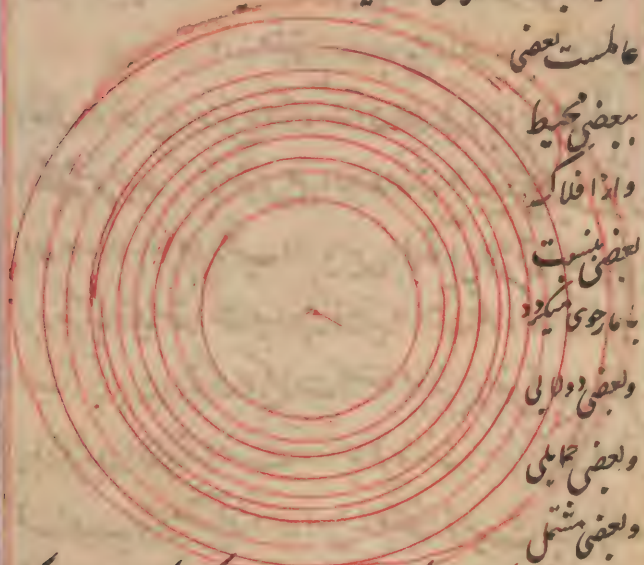 عالمست بعضی
ببعضی محیط
و از افلاک
بعضی بنسبت
میکردد
و بعضی دولابی
و بعضی حمایلی
و بعضی مشتمل